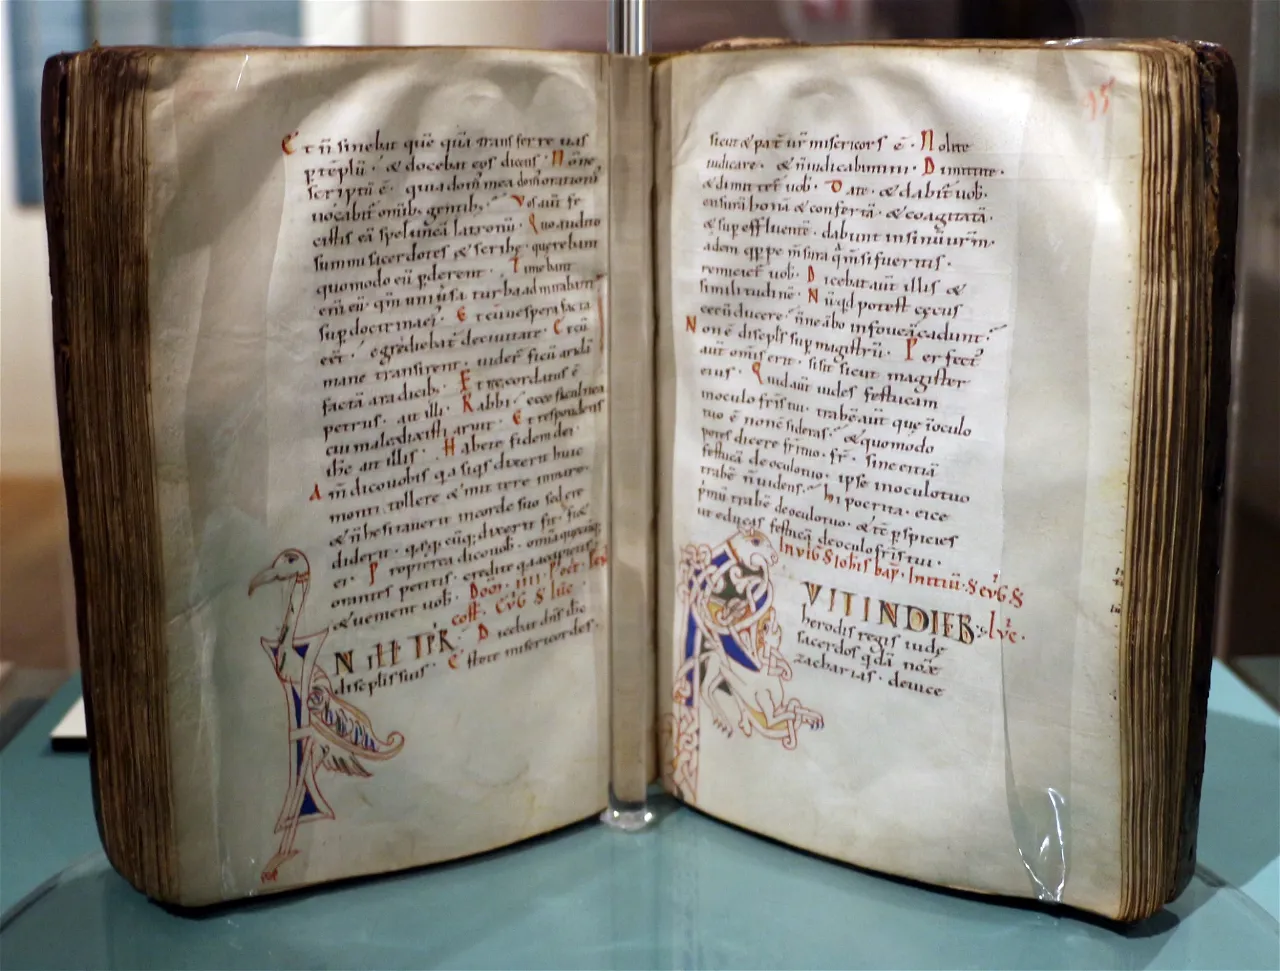 Et n̄ sinebat quē quā transferre uas
p templū · & docebat eos dicens · Nōne
scriptū ē · quia dom̄ mea dom̄ orationis
uocabit̄ omīb; gentib; · Vos aut̄ fe
cistis eā speluncā latronū · Quo audito
summi sacerdotes & scribę · querebant
quomodo eū pderent · Timebant
eni eū · qm̄ uniūsa turba admirabat̄
sup doctrina ei · Et cū uespera facta
eēt · egrediebat̄ de ciuitate · Et cū
mane transirent · uider̄ ficū aridā
factā a radicib; · Et recordatus ē
petrus · ait illi · Rabbi · ecce ficulnea
cui maledixisti aruit · Et respondens
ih̄c ait illis · Habete fidem dei ·
Am̄ dico uobis · q̄a siq̄s dixerit huic
monti · tollere & mittere in mare ·
& n̄ hesitauerit in corde suo sed ere
diderit · q̄a q̄cūq; dixerit fit · fi&
ei · Propterea dico uob̄ · omīa quecūq;
orantes petitis · credite q̄a accipietis
& uenient uob̄ · Dom̄ · IIII · Post · Pen̄
cost · Evg̅ s̄ luc̄
IN ILL TPR · Dicebat dn̄s ih̄c
discplis suis · Estote misericordes ·
95
sicut & pat̄ ur̄ misericors ē · Nolite
iudicare · & n̄ iudicabimini · Dimittite ·
& dimittet̄ uob̄ · Date · & dabit̄ uob̄ ·
ensurā bonā & confertā · & coagitatā ·
& sup effluentē · dabunt in sinū ur̄m ·
adem q̄ppe m̄sura q̄ m̄si fueritis ·
remiciet̄ uob̄ · Dicebat aut̄ illis &
similitudinē · Nūq̄d potest cęcus
cecū ducere · n̄ne ābo in foueā cadunt ·
Non ē discpls̄ sup magistrū · Perfect̄
aut̄ om̄is erit · si sit sicut magister
eius · Quid aut̄ uides festucam
in oculo fr̄is tui · trabē aut̄ que ī oculo
tuo ē non c̄sideras · & quomodo
potes dicere fr̄i tuo · fr̄ · sine eitiā
festucā de oculo tuo · ipse in oculo tuo
trabē n̄ uidens · hipocrita · eice
p̄mū trabē de oculo tuo · & tc̄ pspicies
ut educas festucā de oculo fr̄is tui ·
In vig̅ s̄ iohīs bap̄ · Initiū · s̄ evg̅ s̄
FUIT IN DIEB · Lvc̄ ·
herodis regis iudę
sacerdos q̄dā nom̄
zacharias · de uice